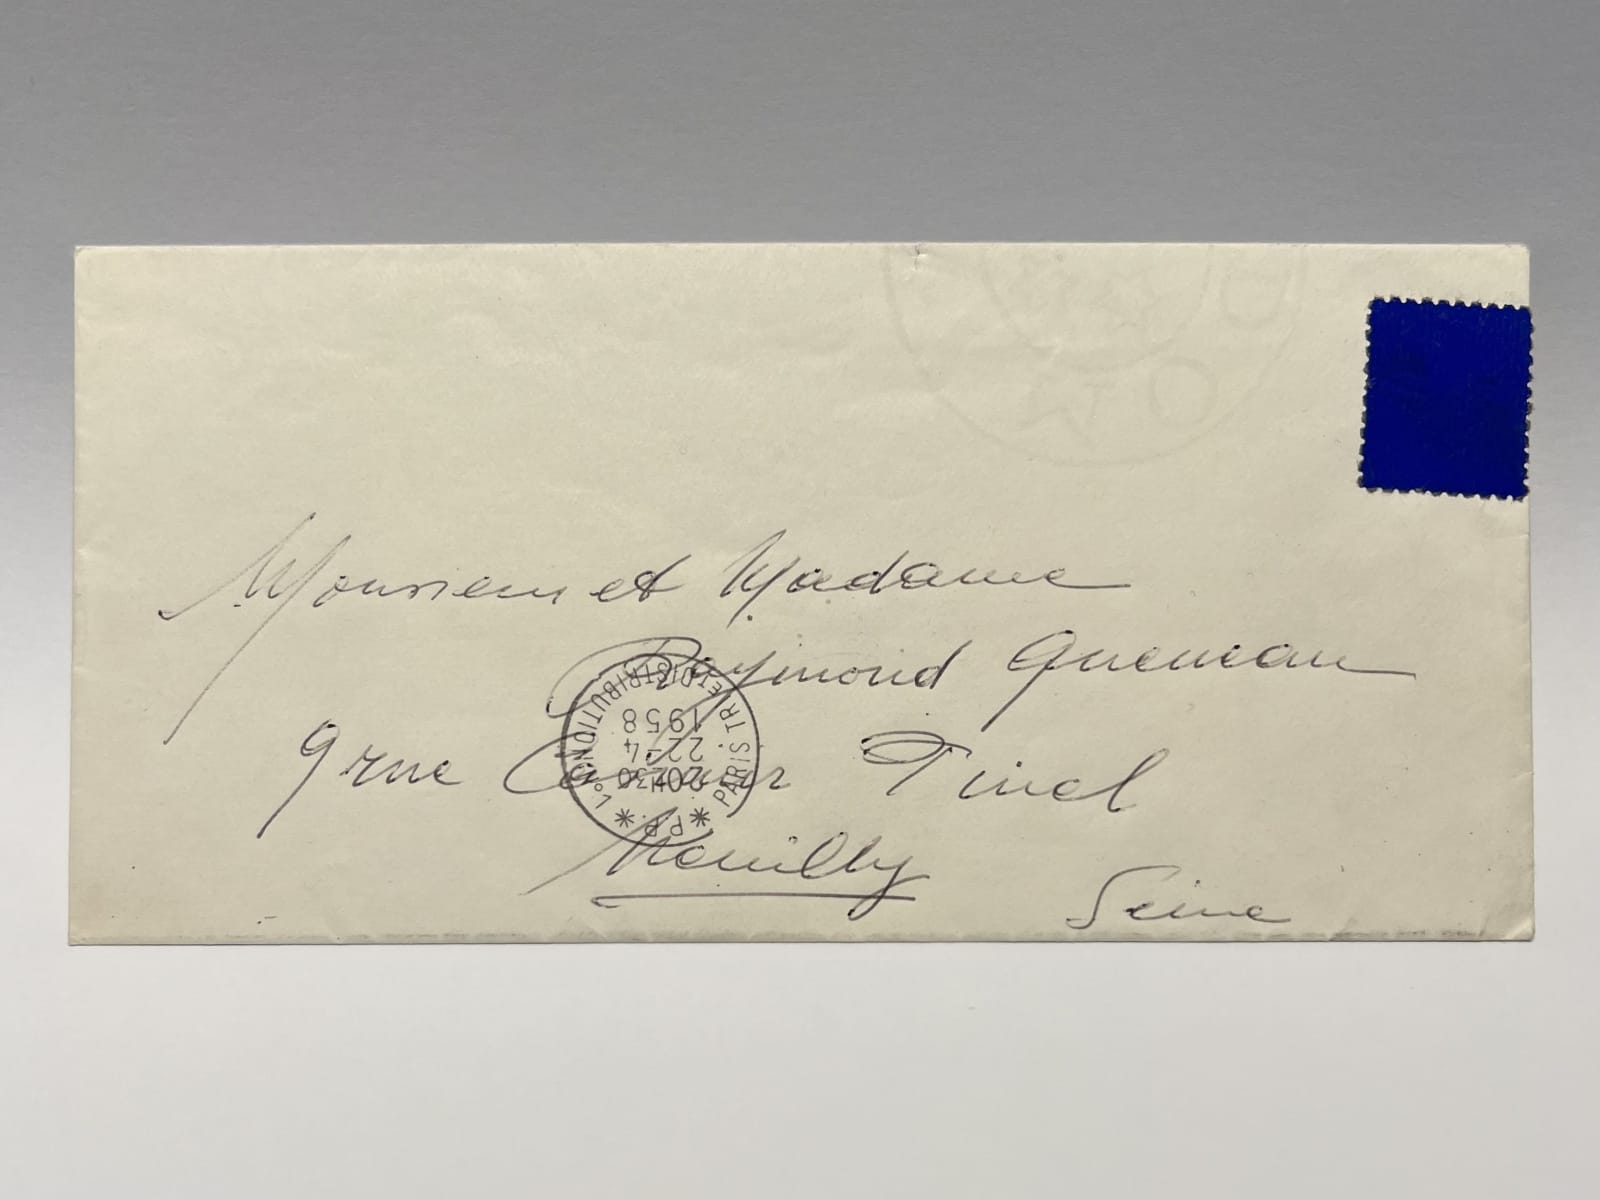 Monsieur et Madame
Raymond Queneau
9 rue Casimir Pinel
Neuilly
Seine
* P.P. * PARIS TRI ET DISTRIBUTION
20H30
22-4
1958